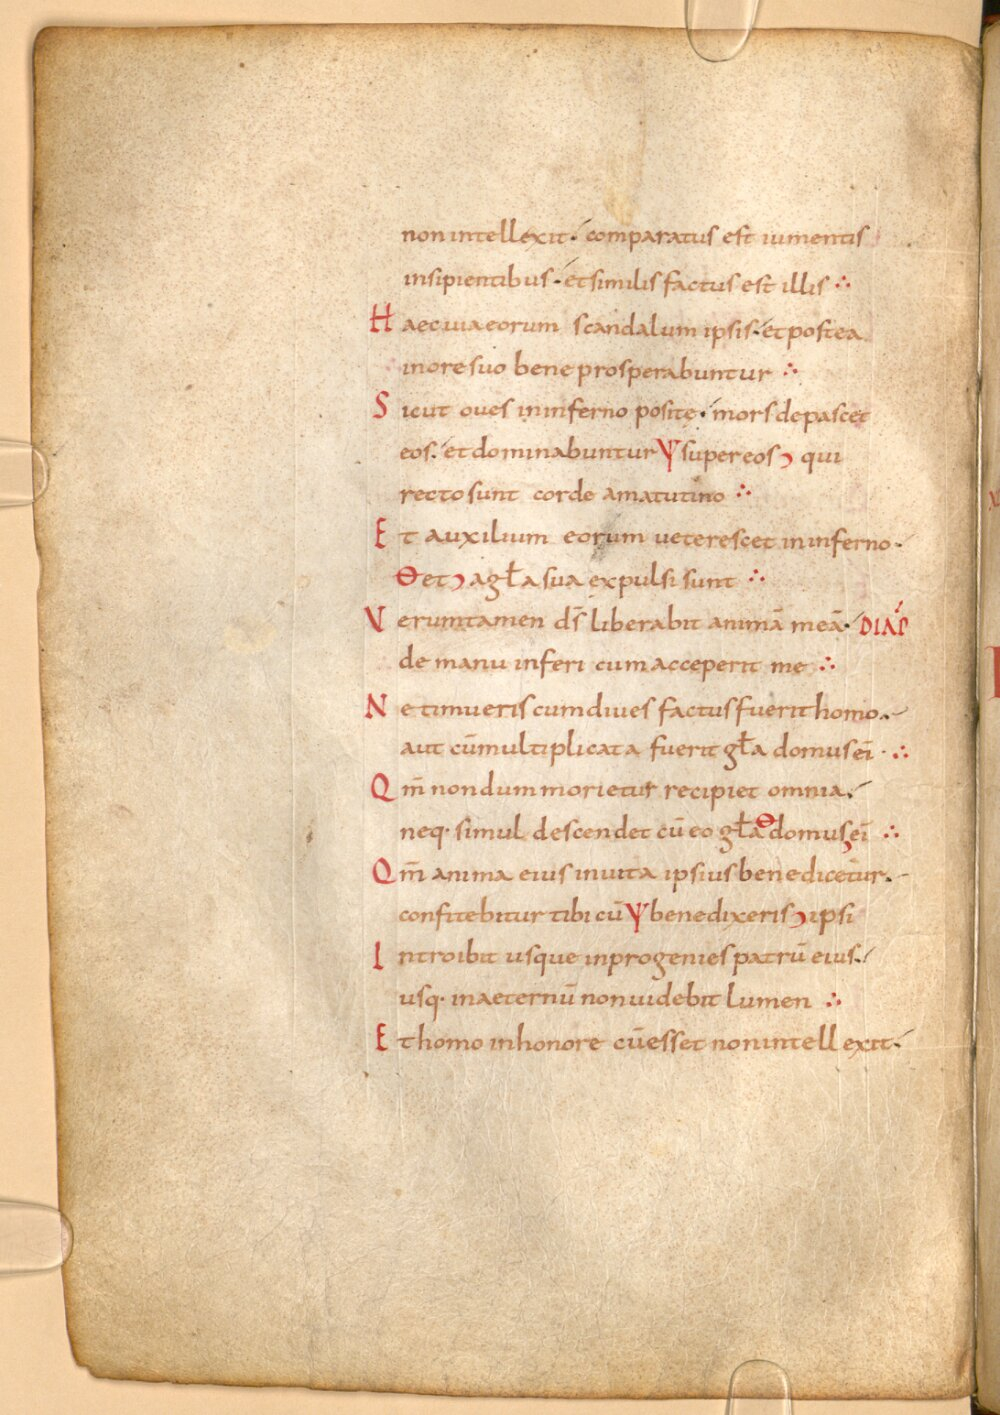 non intellexit· comparatus est iumentis
insipientibus· et similis factus est illis ∴
Haec uia eorum scandalum ipsis· et postea
in ore suo bene prosperabuntur ∴
Sicut oues in inferno positę· mors depascet
eos· et dominabuntur Ψ super eos ꓽ qui
recto sunt corde a matutino ∴
Et auxilium eorum ueterescet in inferno·
Θ et ꓽ a gła sua expulsi sunt ∴
Verumtamen ds̄ liberabit animā meā· DIAP̄
de manu inferi cum acceperit me ∴
Ne timueris cum diues factus fuerit homo·
aut cū multiplicata fuerit gła domus eī ∴
Qm̄ non dum morietur recipiet omnia·
neq· simul descendet cū eo gła Θ domus eī ∴
Qm̄ anima eius in uita ipsius benedicetur·
confitebitur tibi cū Ψ benedixeris ꓽ ipsi
Introibit usque in progenies patrū eius·
usq· in aeternū non uidebit lumen ∴
Et homo in honore cū esset non intellexit·